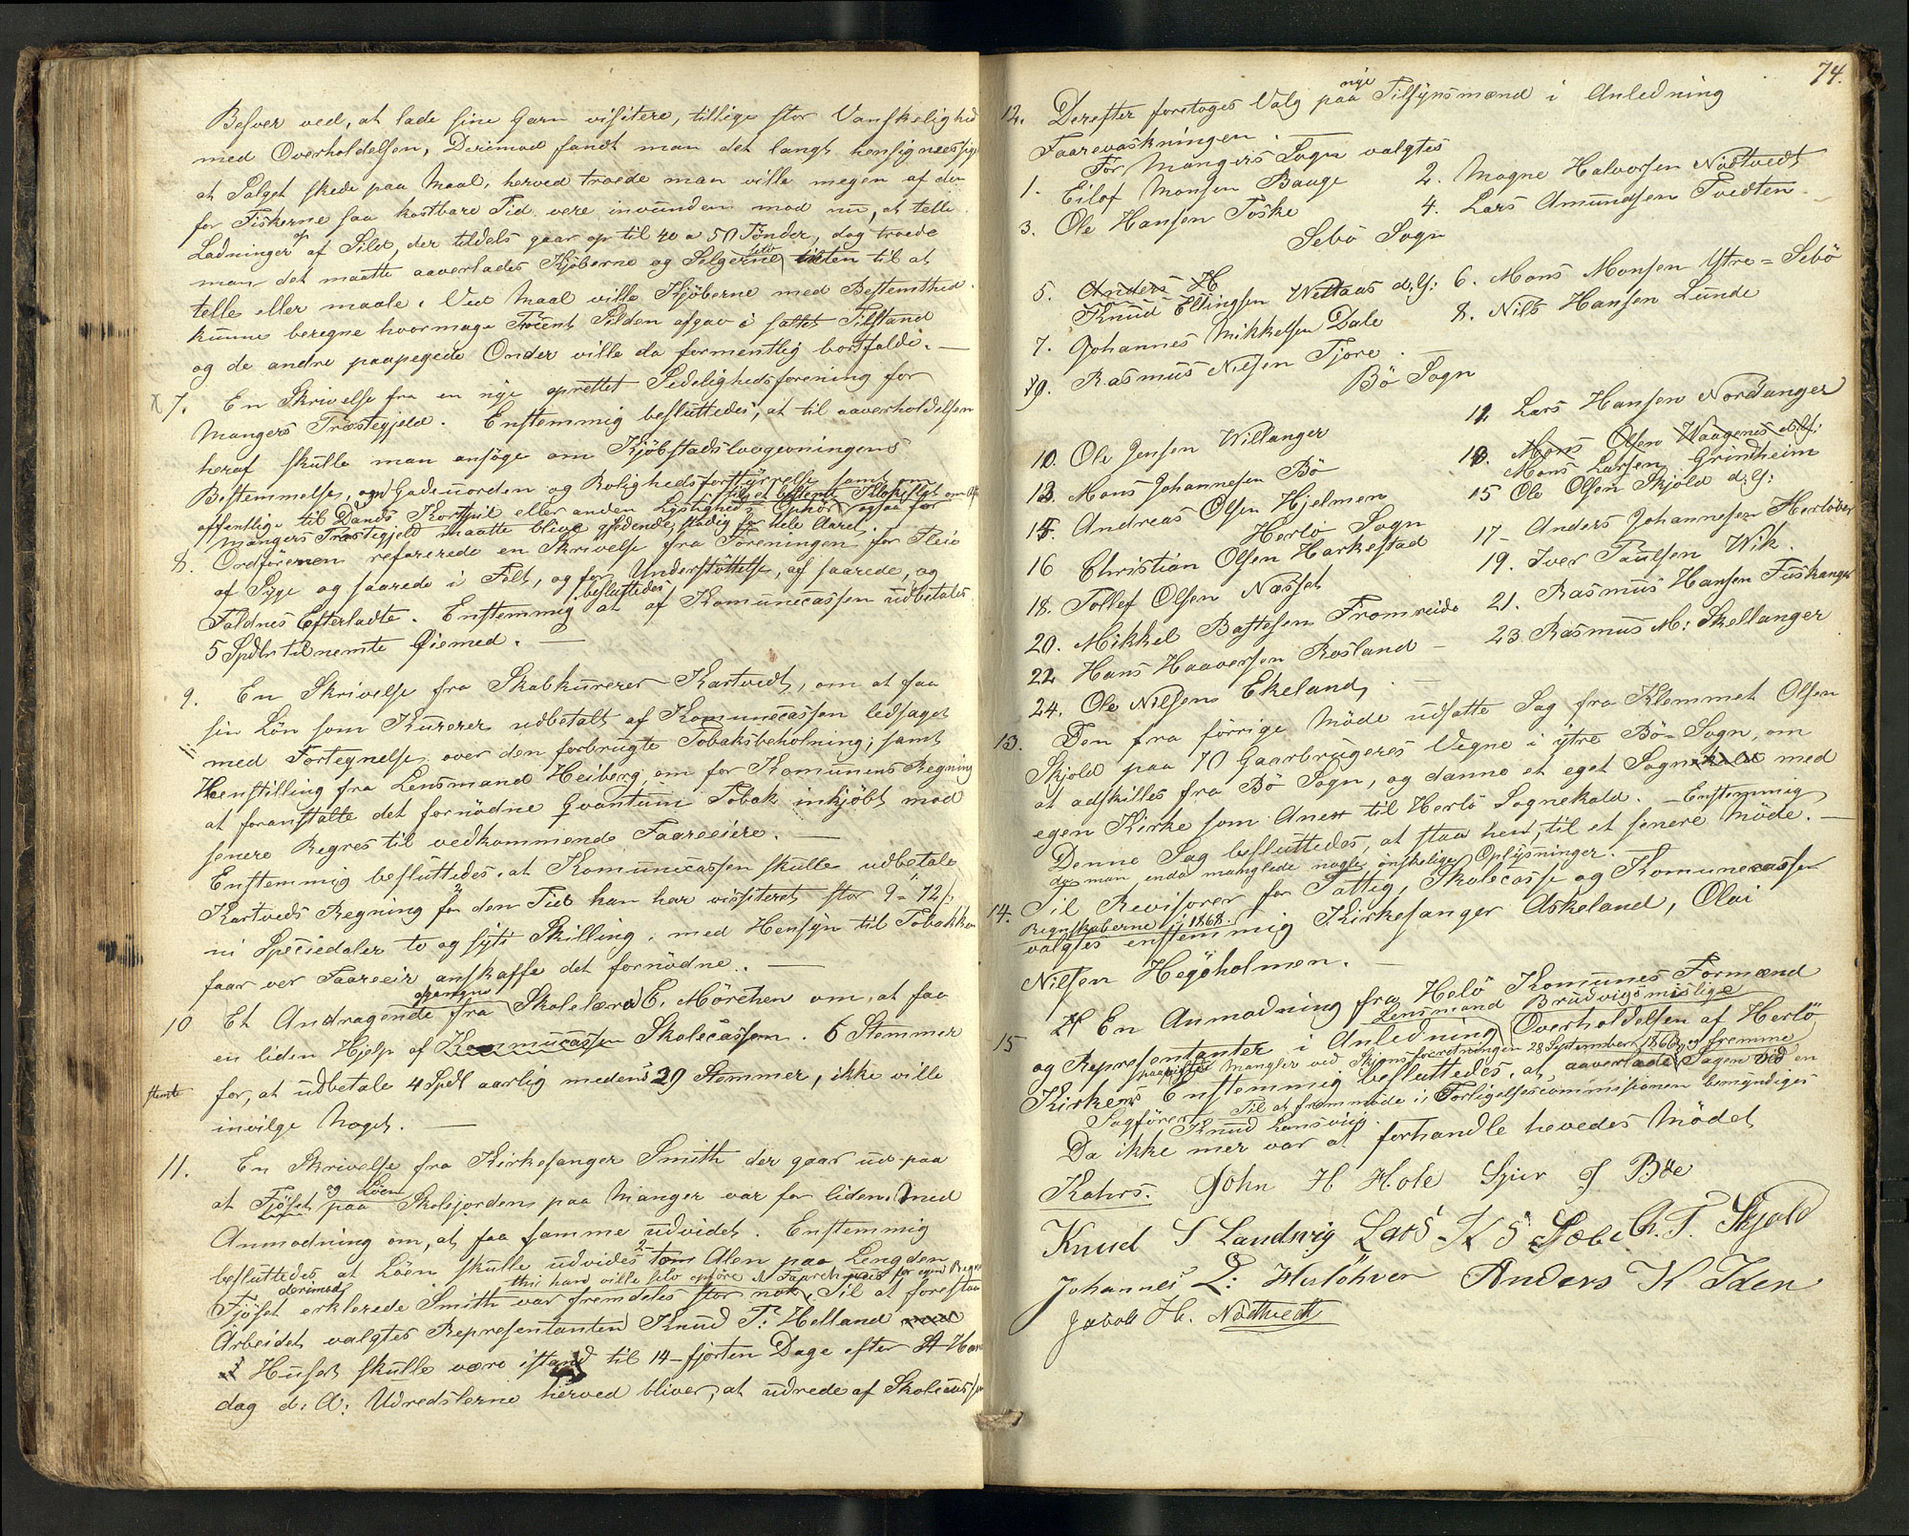 Besver ved, at lade sine Garn visitere, tillige stor Vanskelighed
med Overholdelsen, Derimod fandt man det langt hensigneessig
at Salget skede paa Maal, herved troede man ville megen af den
for Fiskerne saa kostbare Tid vere invunden mod nu, at telle
Ladninger op af Sild, der tildels gaar op til 40 a 50 Tönder, dog troede
man det maatte aaverlades Kjöberne og Selgerne selv til at
telle eller maale. Ved Maal ville Kjöberne med Bestemthed
kunne beregne hvormage Frient Silden afgav i saltet Tilstand
og de andre paapegede Onder ville da formentlig bortfalde. —
7. En Skrivelse fra en nye oprettet Sedelighedsforening for
Mangers Præstegjeld. Enstemmig besluttedes, at til aaverholdelsen
heraf skulle man ansöge om Kjöbstadslovgevningens
Bestemmelse, ang Gadeuorden og Rolighedsforstyrrelse samt
offentlige til Dands Kortspil eller anden Lystighed
Mangers Præstegjeld maatte blive gjeldende stadig for hele Aaret.
8. Ordföreren refererede en Skrivelse fra Foreningen for Pleie
af Syge og saarede i Felt, og for Understöttelse, af saarede, og
Faldnes Efterladte. Enstemmig besluttedes at af Komunecassen udbetales
5 Spdlr til nemte Öiemed. —
9. En Skrivelse fra Skabkurerer Kartvedt, om at faa
sin Lön som Kurerer udbetalt af Komunecassen ledsaget
med Fortegnelse over den forbrugte Tobaksbeholning; samt
Henstilling fra Lensmand Heiberg, om for Komunens Regning
at foranstalte det fornödne Qvantum Tobak inkjöbt mod
senere Regres til vedkommende Faareeiere. —
Enstemmig besluttedes, at Komunecassen skulle udbetale
Kartveds Regning for den Tid han har visiteret stor 9 = 72 s:
ni Speciedaler to og syti Skilling, med Hensyn til Tobakken
faar ver Faareeir anskaffe det fornödne. —
10 Et Andragende fra Skolelærer E. Mörchen om, at faa
en liden Hjelp af Skolecassen. 6 Stemmer
stemte for, at udbetale 4 Spdl aarlig medens 29 Stemmer, ikke ville
invilge Noget. —
11. En Skrivelse fra Kirkesanger Smith der gaar ud paa
at Fjöset og Löen paa Skolejorden paa Manger var for liden. Med
Anmodning om, at faa samme udvidet. Enstemmig
besluttedes at Löen skulle udvides 2 Alen paa Lengden
thi hand ville selv opföre
Fjöset derimod erklerede Smith var fremdeles stor nok, Til at forestaa
Arbeidet valgtes Representanten Knud T: Helland
Huset skulle være istand til 14-fjorten Dage efter St Hans
dag d: A: Udredslerne herved bliver, at udrede af Skolecassen
74.
12. Derefter foretoges Valg paa nye Tilsynsmænd i Anledning
Faarevaskningen. —
For Mangers Sogn valgtes
1. Eilof Monsen Bauge 2. Magne Halvorsen Nödtvedt
3. Ole Hansen Toske 4. Lars Amundsen Tvedten
Sebö Sogn
5. Anders H
Knud Ellingsen Vetaas d:y: 6. Mons Monsen Ytre = Sebö
7. Johannes Mikkelsen Dale 8. Nils Hansen Lunde
9. Rasmus Nilsen Fjore. —
Bö Sogn
10. Ole Jensen Villanger 11. Lars Hansen Nordanger
12. Mons Johannesen Bö 13. Mons Olsen Waagenes d:y:
Mons Larsen Grindheim
14. Andreas Olsen Hjelmen 15 Ole Olsen Skjold d:y:
Herlö Sogn
16 Christian Olsen Harkestad 17 - Anders Johannesen Herlövær
18. Tollef Olsen Nasset 19. Iver Paulsen Wik.
20. Mikkel Bastesen Fromreide 21. Rasmus Hansen Fuskanger
22 Hans Haaversen Rosland - 23. Rasmus M: Skellanger
24. Ole Nilsen Ekeland, —
13. Den fra förrige Möde udsatte Sag fra Klemmet Olsen
Skjold paa 70 Gaarbrugeres Vegne i ytre Bö-Sogn, om
at adskilles fra Bö Sogn, og danne et eget Sogn med
egen Kirke som Anex til Herlö Sognekald. - Enstemmig
Denne Sag besluttedes, at staa hen, til et senere Möde. —
da man enda manglede nogle önskelige Oplysninger.
14. Til Revisorer for Fattig, Skolecasse og Komunecassen
Regnskaberne i 1868.
valgtes enstemmig Kirkesanger Askeland, Olai
Nilsen Hegöholmen. —
15 En Anmodning fra Helö Komunes Formænd
Lensmand Brudvigs mislige
og Representanter i Anledning Overholdelsen af Herlö
paapegte Mangler ved Skjönsforretningen 28 September 1866, og fremme
Kirkens Enstemmig besluttedes, at aaverlade Sagen til en
Sagförer. Til at fremmöde i Forligelsescommisionen bemyndiges
Knud Lansvig.
Da ikke mer var at forhandle hevedes Mödet
Kahrs. John H Hole Sjur J Böe
Knud S Landsvig Lars K S Sæbö Ch. T. Skjold
Johannes L: Husöhver Anders K Iden
Jakob H. Nödtvedt